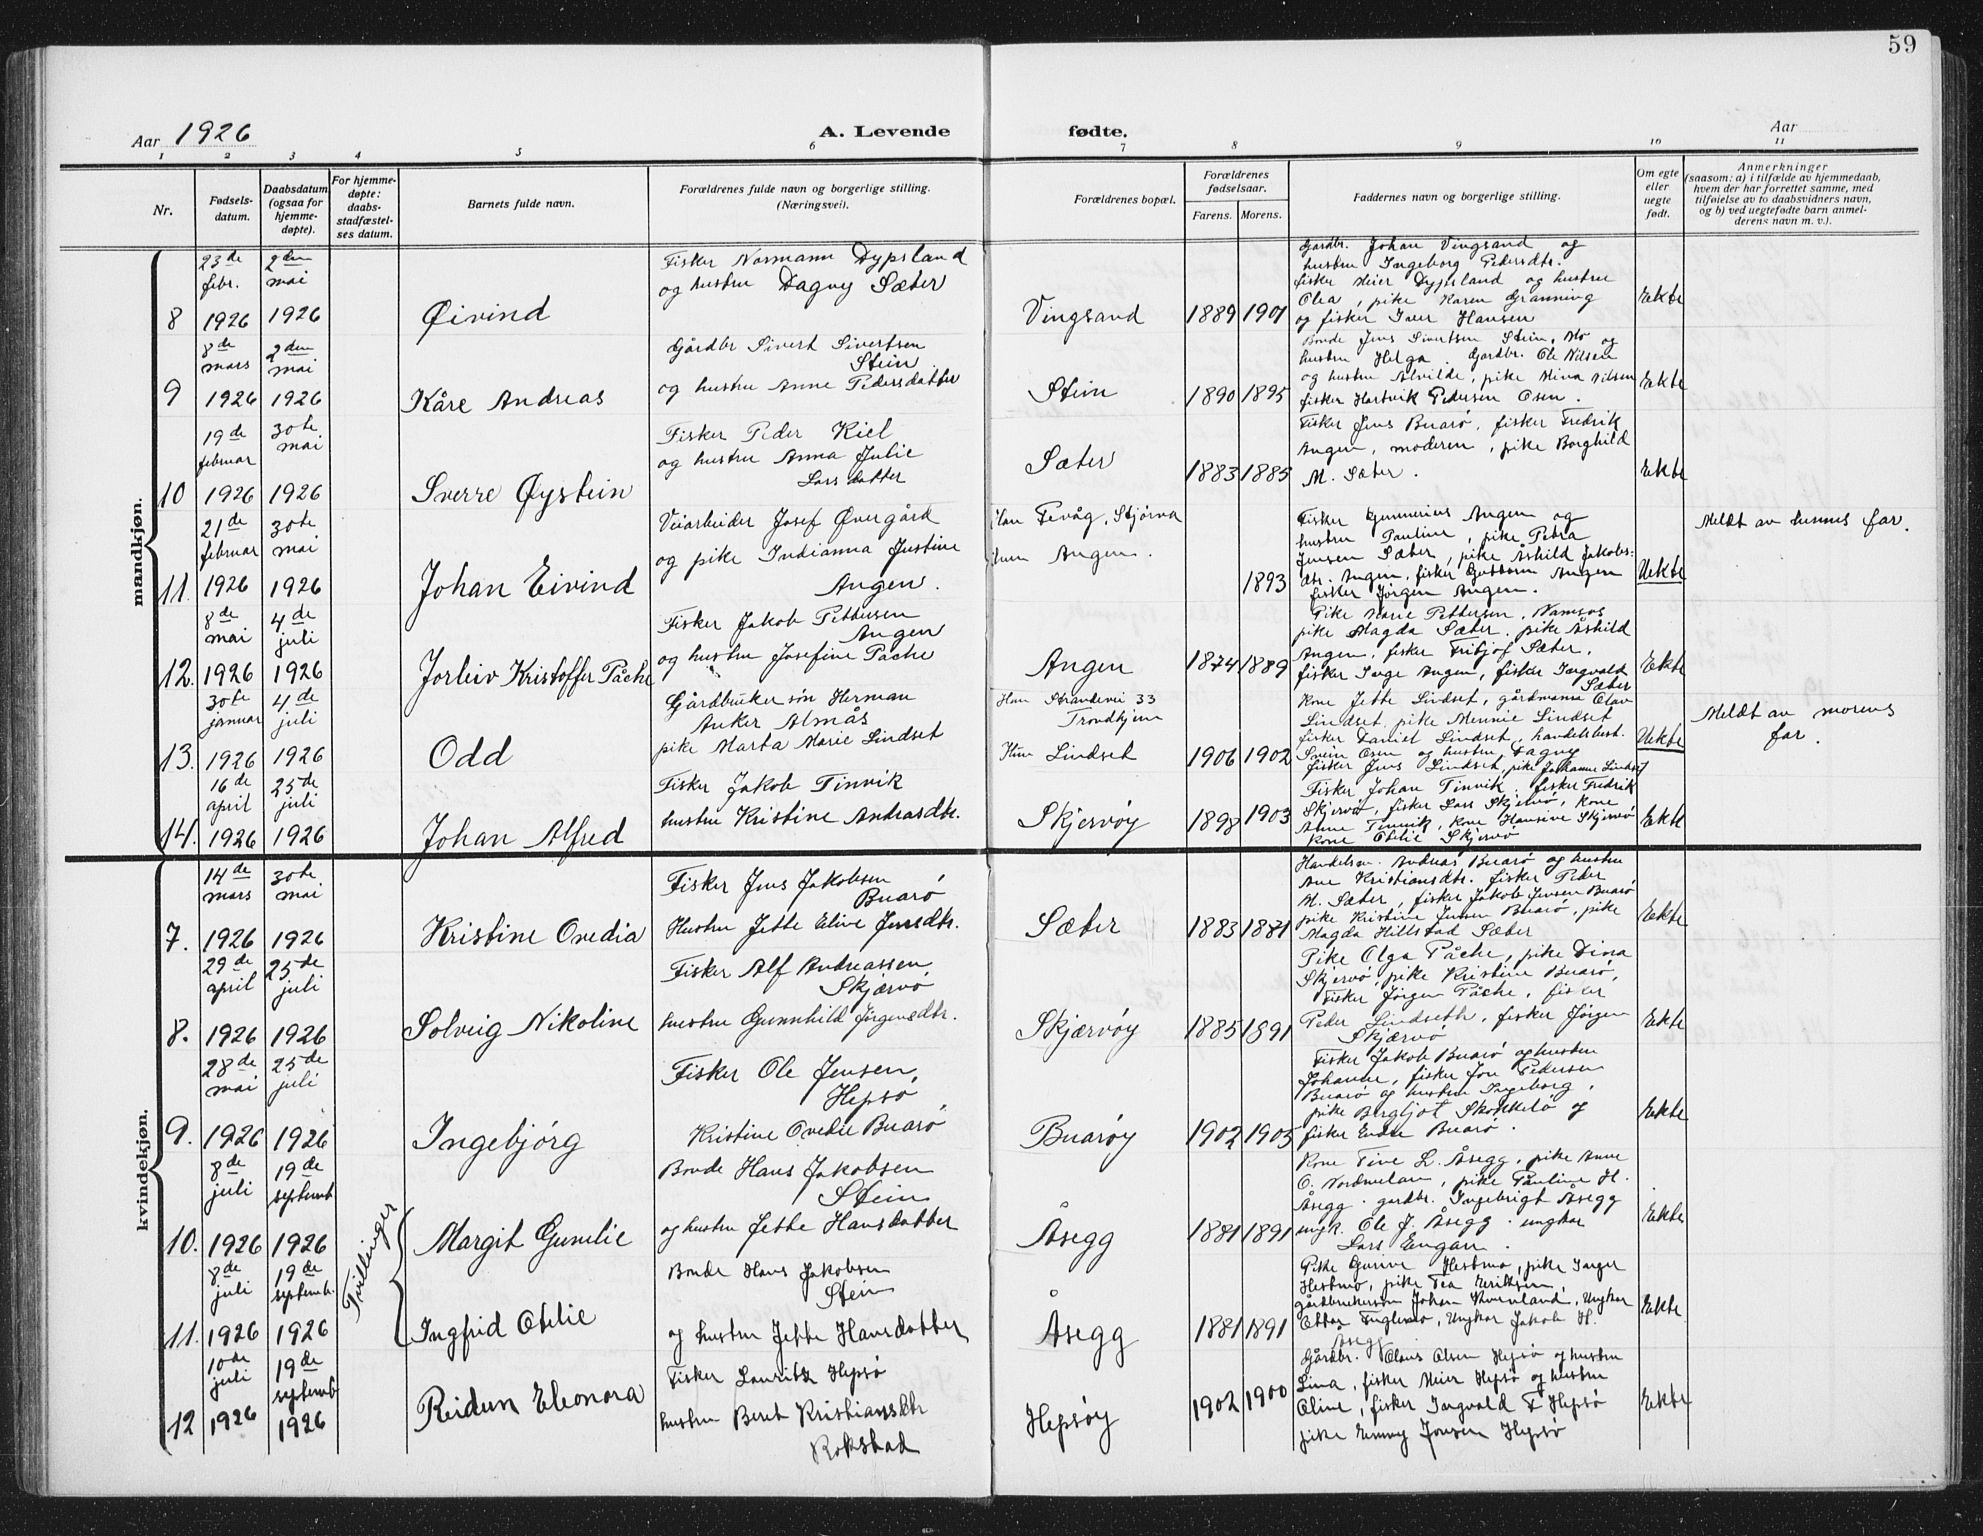 59
Aar 1926
A. Levende fødte.
Aar
1 2 3 4 5 6 7 8 9 10 11
Nr.
Fødsels-
datum.
Daabsdatum
(ogsaa for
hjemme-
døpte).
For hjemme-
døpte:
daabs-
stadfæstel-
ses datum.
Barnets fulde navn.
Forældrenes fulde navn og borgerlige stilling.
(Næringsvei).
Forældrenes bopæl.
Forældrenes
fødselsaar.
Farens. Morens.
Faddernes navn og borgerlige stilling.
Om egte
eller
uegte
født.
Anmerkninger
(saasom: a) i tilfælde av hjemmedaab,
hvem der har forrettet samme, med
tilføielse av to daabsvidners navn,
og b) ved uegtefødte barn anmel-
derens navn m. v.).
mandkjøn.
8
23de
febr.
1926
2den
mai
1926
Øivind
Fisker Normann Dypsland
og hustru Dagny Sæter
Vingsand
1889 1901
Gardbr. Johan Vingsand og
hustru Ingeborg Pedersdtr.
fisker Meier Dypsland og hustru
Olea, pike Karen Grønning
og fisker Iver Hansen
Ekte
9
8de
mars
1926
2den
mai
1926
Kåre Andreas
Gårdbr Sivert Sivertsen
Stein
og hustru Anne Pedersdatter
Stein
1890 1895
Bonde Jens Sivertsen Stein, Mo og
hustru Helga. Gardbr. Ole Nilsen
og hustru Alvilde, pike Mina Nilsen
fisker Hartvik Pedersen Osen.
Ekte
10
19de
februar
1926
30te
mai
1926
Sverre Øystein
Fisker Peder Kiel
og hustru Anna Julie
Larsdatter
Sæter
1883 1885
Fisker Jens Buarø, fisker Fredrik
Angen, moderen, pike Borghild
M. Sæter.
Ekte
11.
21de
februar
1926
30te
mai
1926
Johan Eivind
Veiarbeider Josef Øvergård
og pike Indianna Justine
Angen.
Han Fevåg, Stjørna
Hun Angen.
1893
Fisker Gunnerius Angen og
hustru Pauline, pike Petra
Jensen Sæter, pike Åshild Jakobs-
dtr. Angen, fisker Angen
fisker Jørgen Angen.
Uekte
Meldt av hennes far.
12.
8de
mai
1926
4de
juli
1926
Jorleiv Kristoffer Påche
Fisker Jakob Pettersen
Angen
og hustru Josefine Påche
Angen
1874 1889
Pike Marie Pettersen, Namsos
pike Magda Sæter, pike Åshild
Angen, fisker Fritjof Sæter,
fisker Inge Angen, fisker Ingvald
Sæter
Ekte
13.
30te
januar
1926
4de
juli
1926
Odd
Gårdbruker søn Herman
Anker Almås
pike Marta Marie Lindset
Han Strandvei 33
Trondhjem
Hun Lindset
1906 1902
Kone Jette Lindset, gårdmann Olav
Lindset, pike Mennie Lindset
fisker Daniel Lindset, handelsbest.
Svein Osen og hustru Dagny
fisker Jens Lindset, pike Johanne Lindset
Uekte
Meldt av morens
far.
14.
16de
april
1926
25de
juli
1926
Johan Alfred
Fisker Jakob Tinnvik
hustru Kristine Andreasdtr.
Skjervøy
1898 1903
Fisker Johan Tinnvik, fisker Fredrik
Skjervø, fisker Lars Skjervø, kone
Anne Tinnvik, kone Hansine Skjervø
kone Otelie Skjervø
Ekte
kvindekjøn.
7.
14de
mars
1926
30te
mai
1926
Kristine Ovedia
Fisker Jens Jakobsen
Buarø
Hustru Jette Eline Jensdtr.
Sæter
1883 1881
Handelsm. Andreas Buarø og hustru
Ane Kristiansdtr. fisker Peder
M. Sæter, fisker Jakob Jensen Buarø
pike Kristine Jensen Buarø, pike
Magda Hillstad Sæter
Ekte
8.
29de
april
1926
25de
juli
1926
Solveig Nikoline
Fisker Alf Andreassen,
Skjærvø
hustru Gunnhild Jørgensdtr.
Skjærvøy
1885 1891
Pike Olga Påche, pike Dina
Skjervø, pike Kristine Buarø,
Fisker Jørgen Påche, fisker
Peder Lindseth, fisker Jørgen
Skjærvø
Ekte
9.
28de
mai
1926
25de
juli
1926
Ingebjørg
Fisker Ole Jensen,
Hepsø,
Kristine Ovedie Buarø
Buarøy
1902 1905
Fisker Jakob Buarø og hustru
Johanne, fisker Jon Pedersen
Buarø og hustru Ingeborg,
pike Bergljot Skokkelø og
fisker Endre Buarø.
Ekte
Tvillinger
10.
8de
juli
1926
19de
septemb.
1926
Margit Gunelie
Bonde Hans Jakobsen
Stein
og hustru Jette Hansdatter
Åsegg
1881 1891
Kone Tine L. Åsegg, pike Anne
O. Nordmelan, pike Pauline H.
Åsegg. gardbr. Ingebrigt Åsegg
ungk. Ole J. Åsegg. ungkar
Lars Engan.
Ekte
11.
8de
juli
1926
19de
septemb.
1926
Ingfrid Otelie
Bonde Hans Jakobsen
Stein
og hustru Jette Hansdatter
Åsegg
1881 1891
Pike Gurine Hestmo, pike Inger
Hestmo, pike Tea Eriksen,
gårdbrukersøn Johan Kvernland, Ungkar
Ottar, Ungkar Jakob H.
Åsegg
Ekte
12
10de
juli
1926
19de
septemb
1926
Reidun Eleonora
Fisker Lauritz Hepsø
hustru Beret Kristiansdtr
Rokstad
Hepsøy
1902 1900
Gårdbr. Claus Olsen Hepsø og hustru
Lina, fisker Meier Hepsø og hustru
Oline, fisker Ingvald F Hepsø
pike Emmy Jonsen Hepsø
Ekte